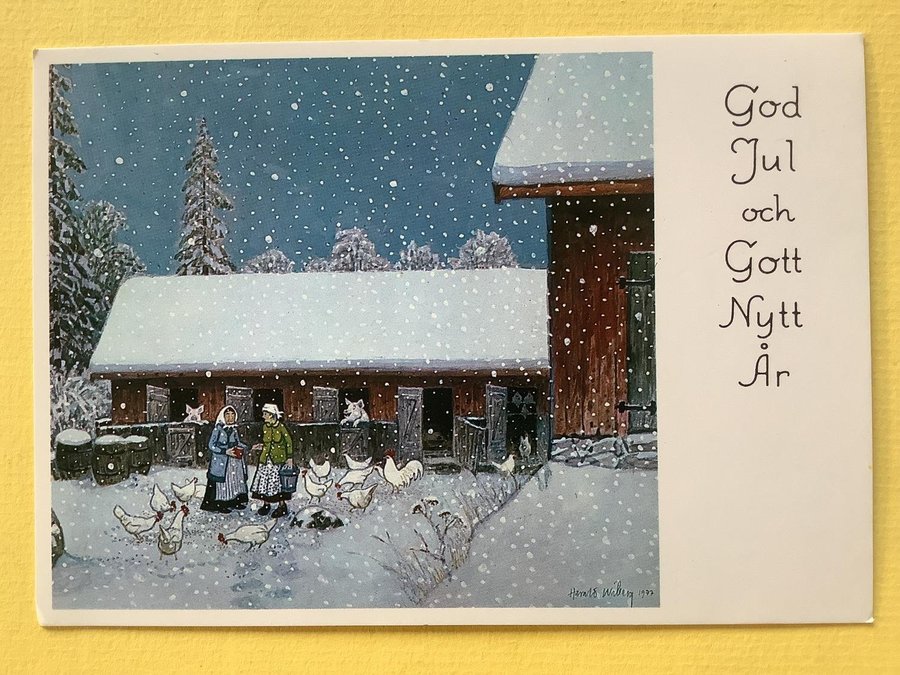 God
Jul
och
Gott
Nytt
År
Harald Wiberg 1977